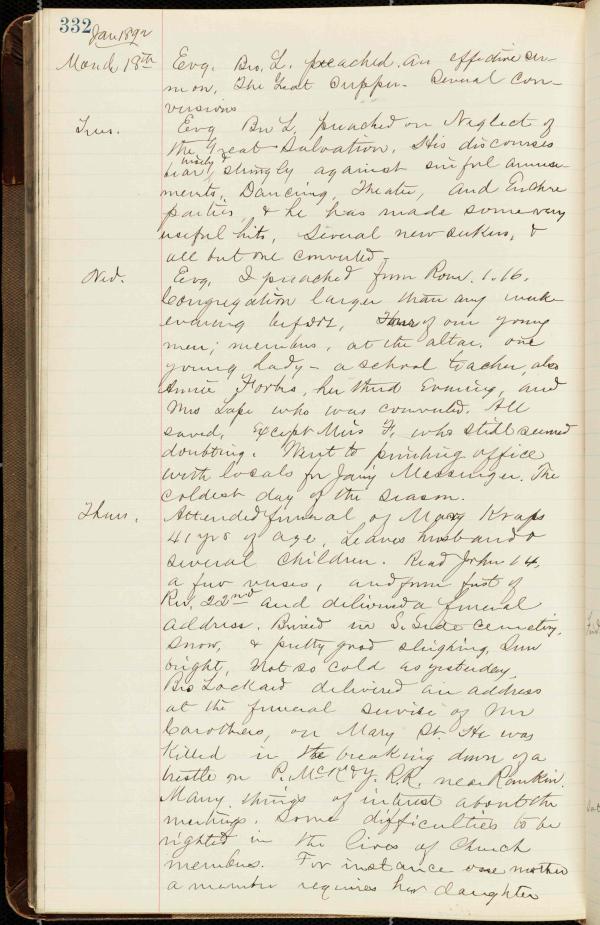 332 Jan 1892
Mond. 18th Evg. Bro. L. preached an effective ser-
mon, The Great Supper. Several con-
versions
Tues. Evg Bro L. preached on Neglect of
the Great Salvation. His discourses
bear nicely & stringly against sinful amuse-
ments, Dancing, Theater, and Euchre
parties, & he has made some very
useful hits, Several new seekers, &
all but one converted.
Wed. Evg. I preached from Rom. 1.16.
Congregation larger than any week
evening before, of our young
men; members, at the altar. one
young lady - a school teacher, also
Annie Forbs, her third Evening, and
Mrs Lape who was converted. All
saved, Except Miss F. who still seemed
doubting. Went to printing office
with locals for Jany Messenger. The
coldest day of the season.
Thurs. Attended funeral of Mary Kraps
41 yrs of age, Leaves husband &
several children. Read John 14,
a few verses, and from first of
Rev. 22nd and delivered a funeral
address. Buried in S. Side Cemetery.
Snow, & pretty good sleighing, Sun
bright, Not so cold as yesterday.
Bro Lockard delivered an address
at the funeral servise of Mr
Carothers, on Mary St. He was
killed in the breaking down of a
trestle on P. McK & Y. R.R. near Rankin.
Many things of interest about the
meetings. Some difficulties to be
righted in the lives of Church
members. For instance one mother
a member requires her daughter